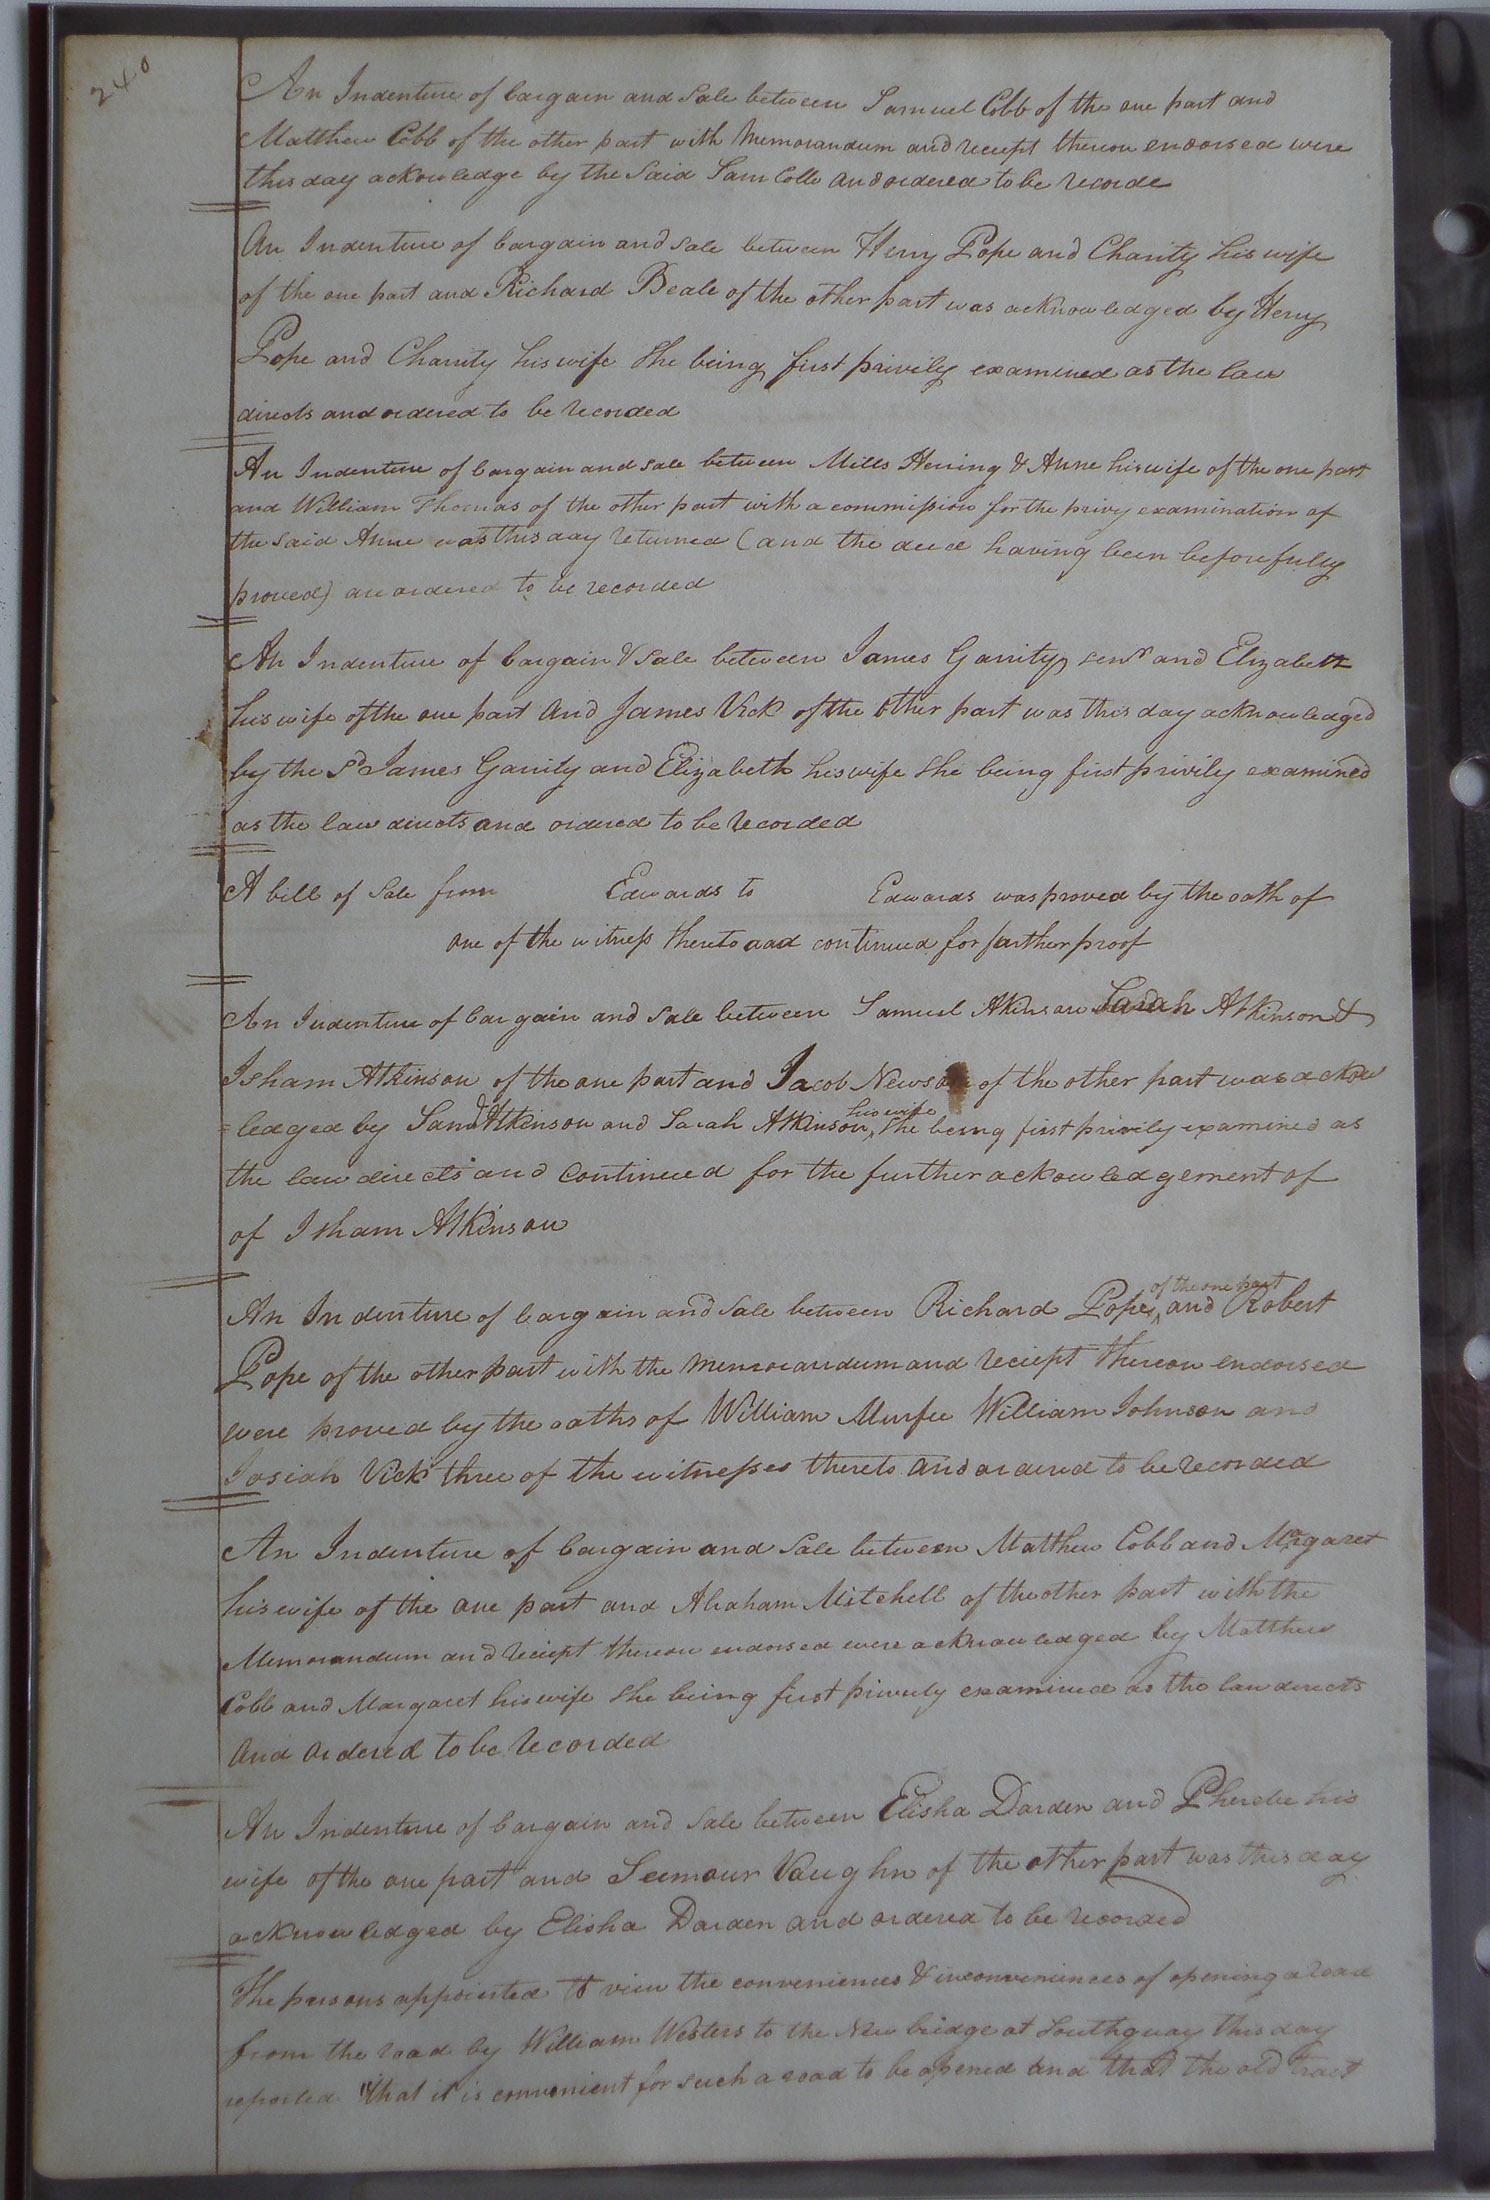 240
An Indenture of bargain and Sale between Samuel Cobb of the one part and
Matthew Cobb of the other part with Memorandum and reciept thereon endorsed were
this day ackowledge by the Said Sam Cobb and ordered to be recorde
An Indenture of bargain and sale between Henry Pope and Charity his wife
of the one part and Richard Beale of the other part was acknowledged by Henry
Pope and Charity his wife she being first privily examined as the law
directs and ordered to be recorded
An Indenture of bargain and sale between Mills Herring & Anne his wife of the one part
and William Thomas of the other part with a commission for the privy examination of
the said Anne was this day returned (and the deed having been before fully
proved) are ordered to be recorded
An Indenture of bargain & sale between James Garrity senr and Elizabeth
his wife of the one part and James Vick of the other part was this day acknowledged
by the Sd James Garrity and Elizabeth his wife she being first privily examined
as the law directs and ordered to be recorded
A bill of Sale from Edwards to Edwards was proved by the oath of
one of the witness thereto and continued for farther proof
An Indenture of bargain and sale between Samuel Atkinson Sarah Atkinson &
Isham Atkinson of the one part and Jacob Newsom of the other part was ackow
=ledged by Saml Atkinson and Sarah Atkinson his wife, she being first privily examined as
the law directs and continued for the further ackowledgement of
of Isham Atkinson
An Indenture of bargain and sale between Richard Pope of the one part and Robert
Pope of the other part with the memorandum and reciept thereon endorsed
were proved by the oaths of William Murfee William Johnson and
Josiah Vick three of the witnesses thereto and ordered to be recorded
An Indenture of bargain and Sale between Matthew Cobb and Margaret
his wife of the one part and Abraham Mitchell of the other part with the
Memorandum and reciept thereon endorsed were acknowledged by Matthew
Cobb and Margaret his wife she being first privily examined as the law directs
and ordered to be recorded
An Indenture of bargain and sale between Elisha Darden and Pherebe his
wife of the one part and Seemour Vaughn of the other part was this day
acknowledged by Elisha Darden and ordered to be recorded
The persons appointed to view the conveniences & inconveniences of opening a road
from the road by William Westers to the New bridge at Southquay this day
reported "that it is convenient for such a road to be opened and that the old